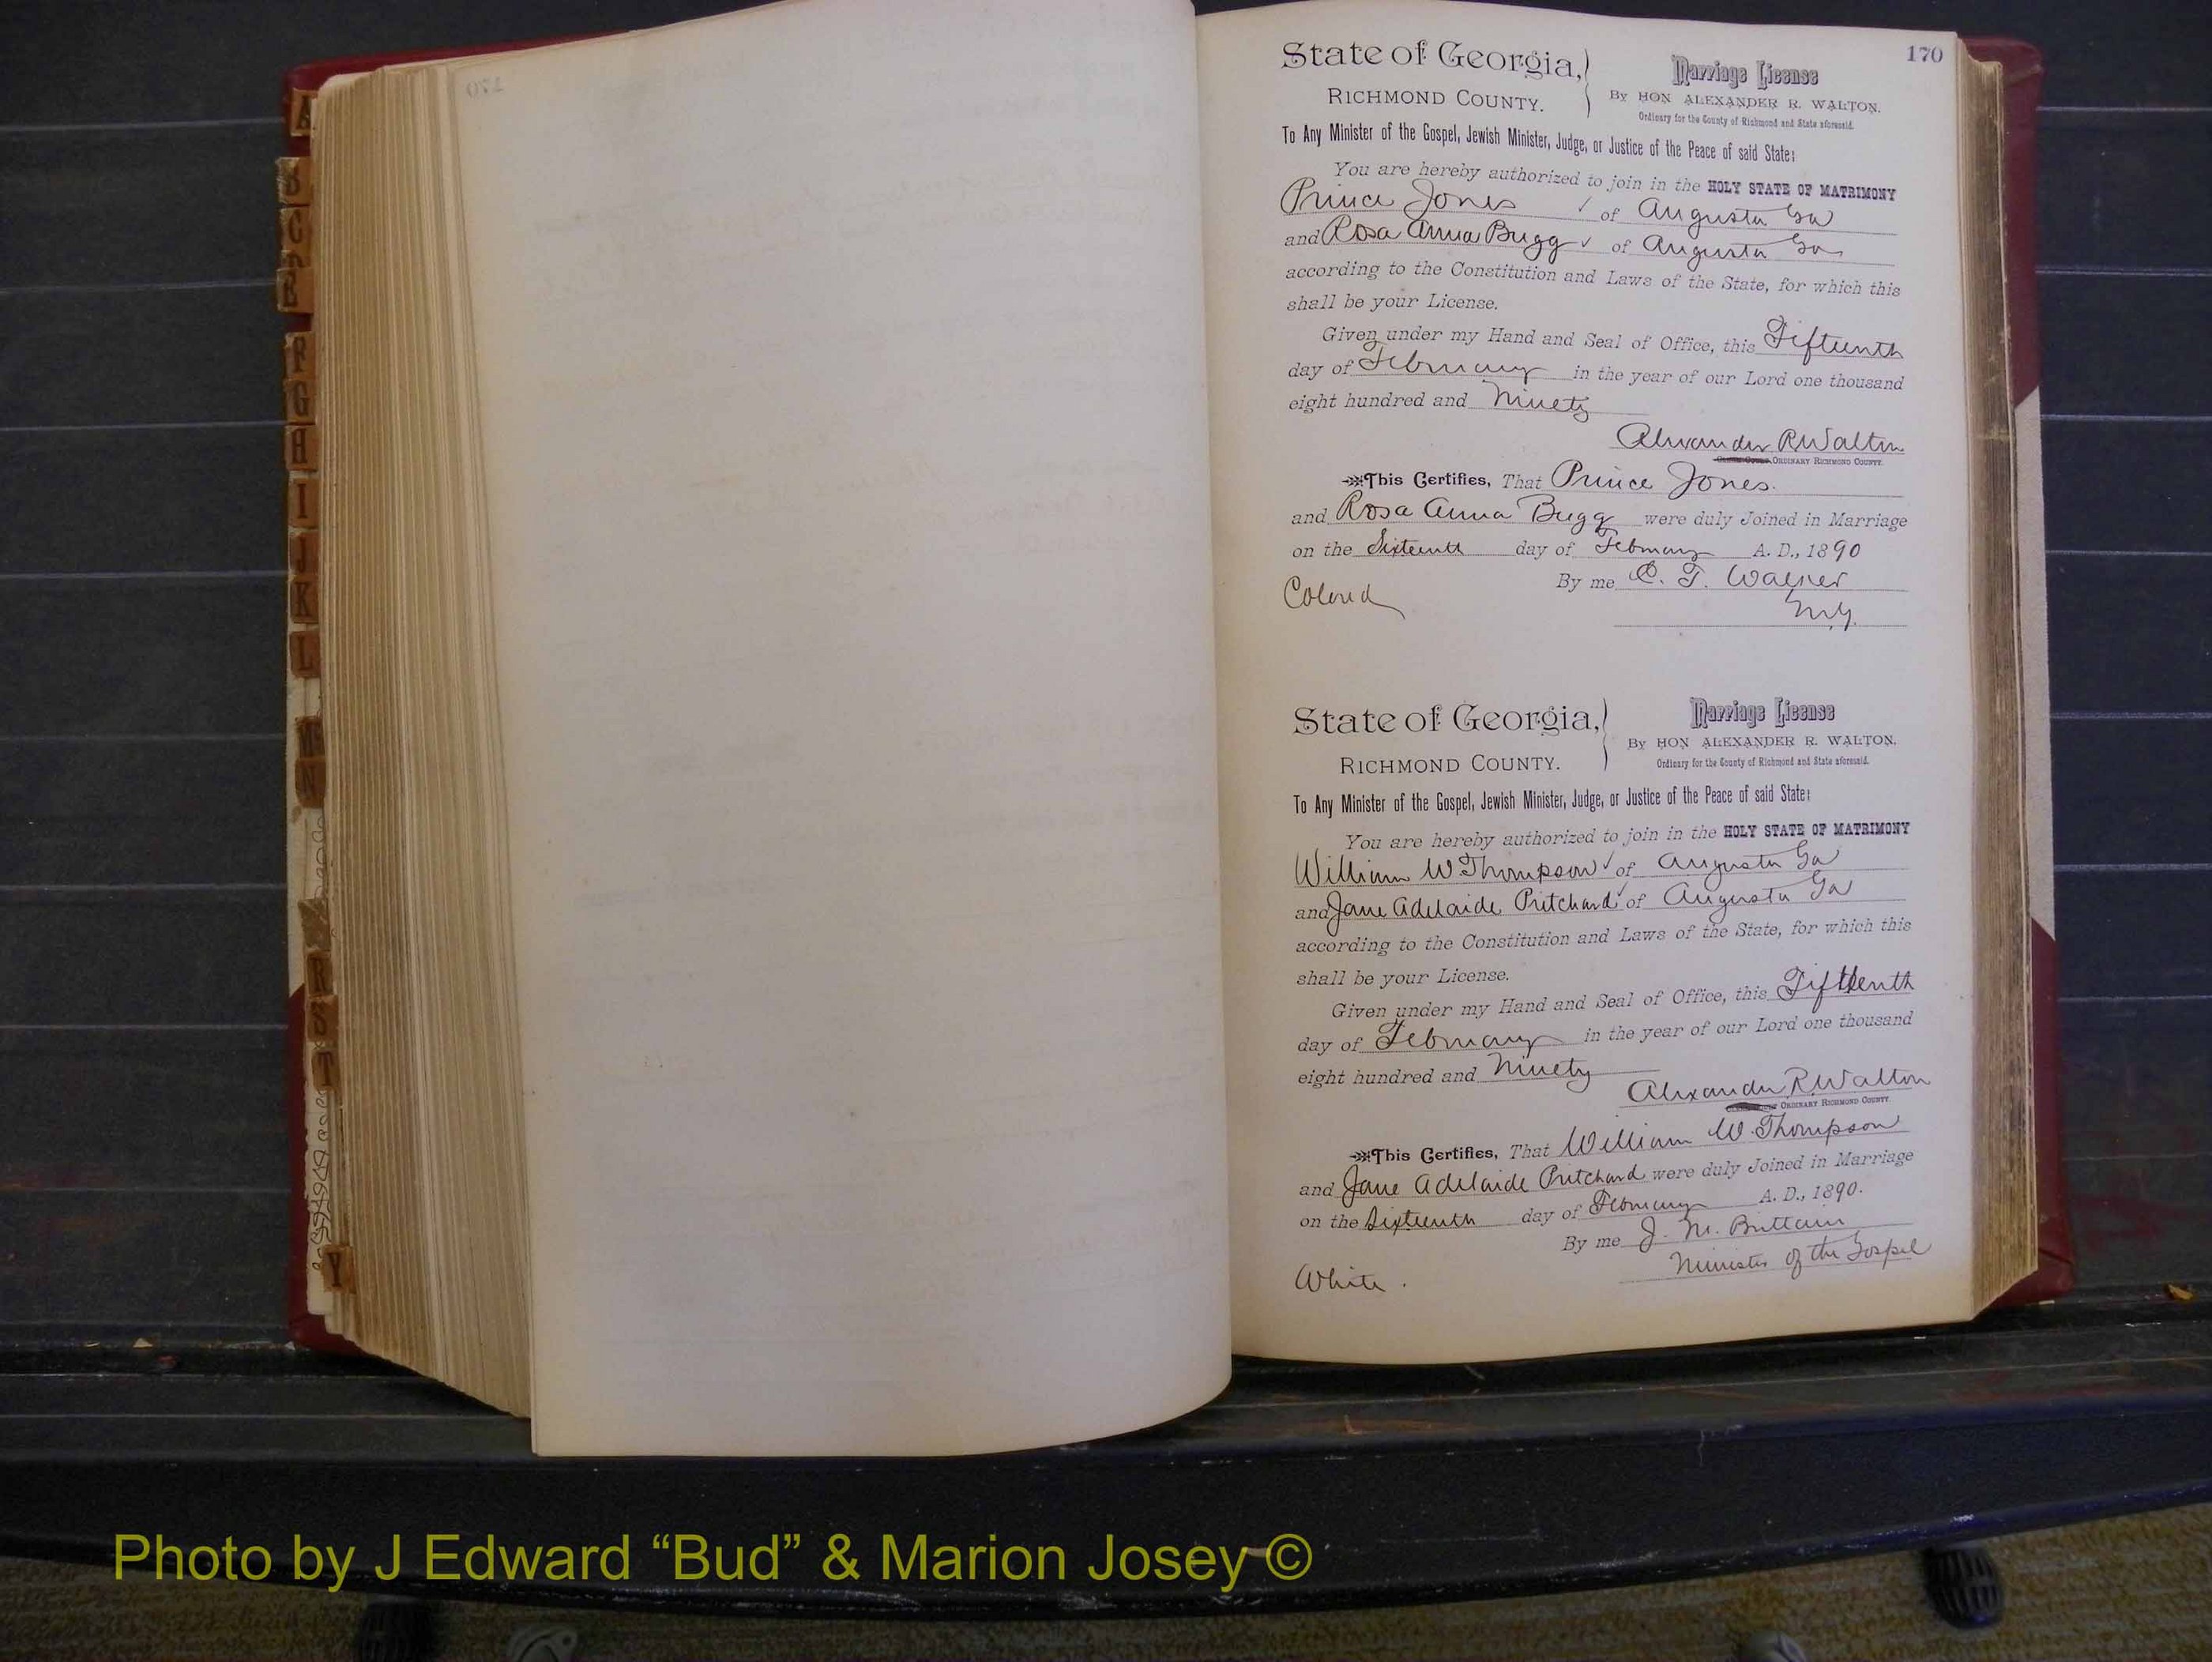 170
State of Georgia,
RICHMOND COUNTY.
Marriage License
By HON ALEXANDER R. WALTON.
Ordinary for the County of Richmond and State aforesaid.
To Any Minister of the Gospel, Jewish Minister, Judge, or Justice of the Peace of said State:
You are hereby authorized to join in the HOLY STATE OF MATRIMONY
Prince Jones ✓ of Augusta Ga
and Rosa Anna Bugg ✓ of Augusta Ga
according to the Constitution and Laws of the State, for which this
shall be your License.
Given under my Hand and Seal of Office, this Fifteenth
day of February in the year of our Lord one thousand
eight hundred and Ninety
Alexander R Walton
ORDINARY RICHMOND COUNTY.
This Certifies, That Prince Jones.
and Rosa Anna Bugg were duly Joined in Marriage
on the Sixteenth day of February A. D., 1890
By me C. T. Walker
Colored
M.G.
State of Georgia,
RICHMOND COUNTY.
Marriage License
By HON ALEXANDER R. WALTON.
Ordinary for the County of Richmond and State aforesaid.
To Any Minister of the Gospel, Jewish Minister, Judge, or Justice of the Peace of said State:
You are hereby authorized to join in the HOLY STATE OF MATRIMONY
William W Thompson ✓ of Augusta Ga
and Jane Adelaide Pritchard ✓ of Augusta Ga
according to the Constitution and Laws of the State, for which this
shall be your License.
Given under my Hand and Seal of Office, this Fifteenth
day of February in the year of our Lord one thousand
eight hundred and Ninety
Alexander R Walton
ORDINARY RICHMOND COUNTY.
This Certifies, That William W. Thompson
and Jane Adelaide Pritchard were duly Joined in Marriage
on the Sixteenth day of February A. D., 1890.
By me J. M. Brittain
Minister of the Gospel
White.
A
B
C
E
F
G
H
I
J
K
L
N
R
S
T
Y
Photo by J Edward “Bud” & Marion Josey ©